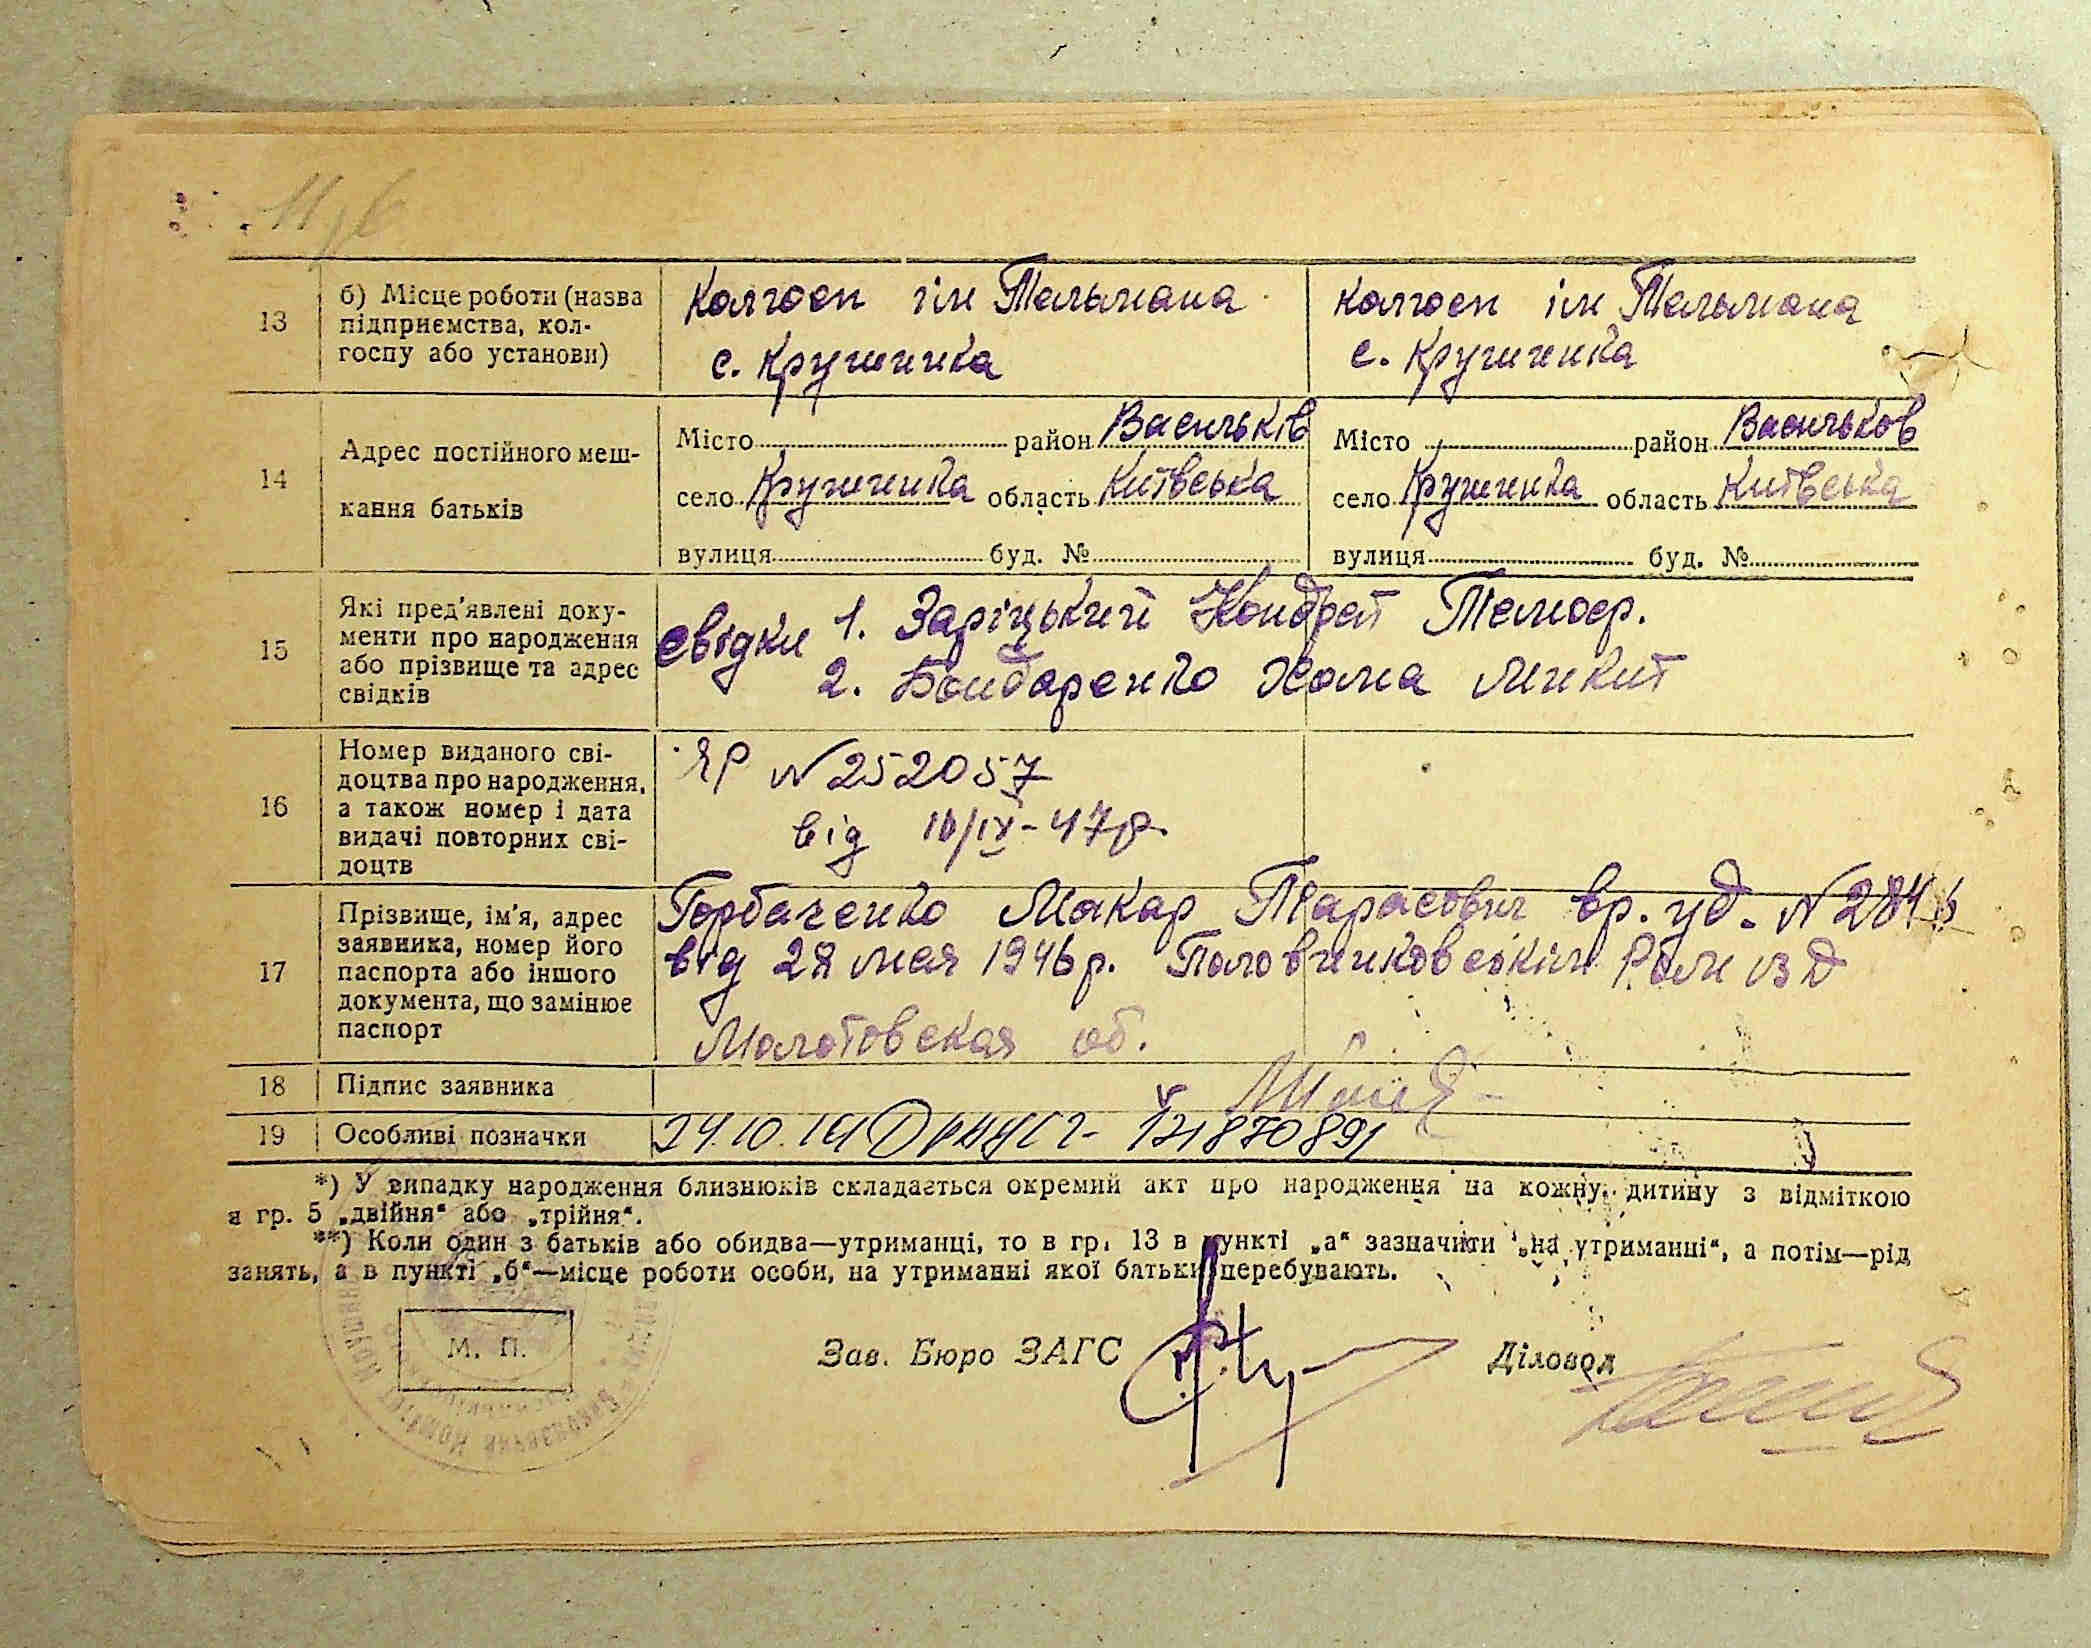 13 б) Місце роботи (назва підприємства, кол-госпу або установи)
колгосп ім Тельмана
с. Крушинка
колгосп ім Тельмана
с. Крушинка
14 Адрес постійного меш-
кання батьків
Місто район Васильків
село Крушинка область Київська
вулиця буд. №
Місто район Васильков
село Крушинка область Київська
вулиця буд. №
15 Які пред'явлені доку-
менти про народження
або прізвище та адрес
свідків
свідки 1. Заріцький Кондрат
2. Бондаренко Хома Микит
16 Номер виданого сві-
доцтва про народження,
а також номер і дата
видачі повторних сві-
доцтв
ЯР N 252057
від 10/IV-47р.
17 Прізвище, ім'я, адрес
заявника, номер його
паспорта або іншого
документа, що замінює
паспорт
Горбаченко Макар Тарасович вр. уд. N
від 28 мая 1946р.
Молотовская об.
18 Підпис заявника
19 Особливі позначки
*) У випадку народження близнюків складається окремий акт про народження на кожну дитину з відміткою
в гр. 5 „двійня“ або „трійня“.
**) Коли один з батьків або обидва—утриманці, то в гр. 13 в пункті „а“ зазначити „на утриманні“, а потім—рід
занять, а в пункті „б“—місце роботи особи, на утриманні якої батьки перебувають.
М. П.
Зав. Бюро ЗАГС
Діловод